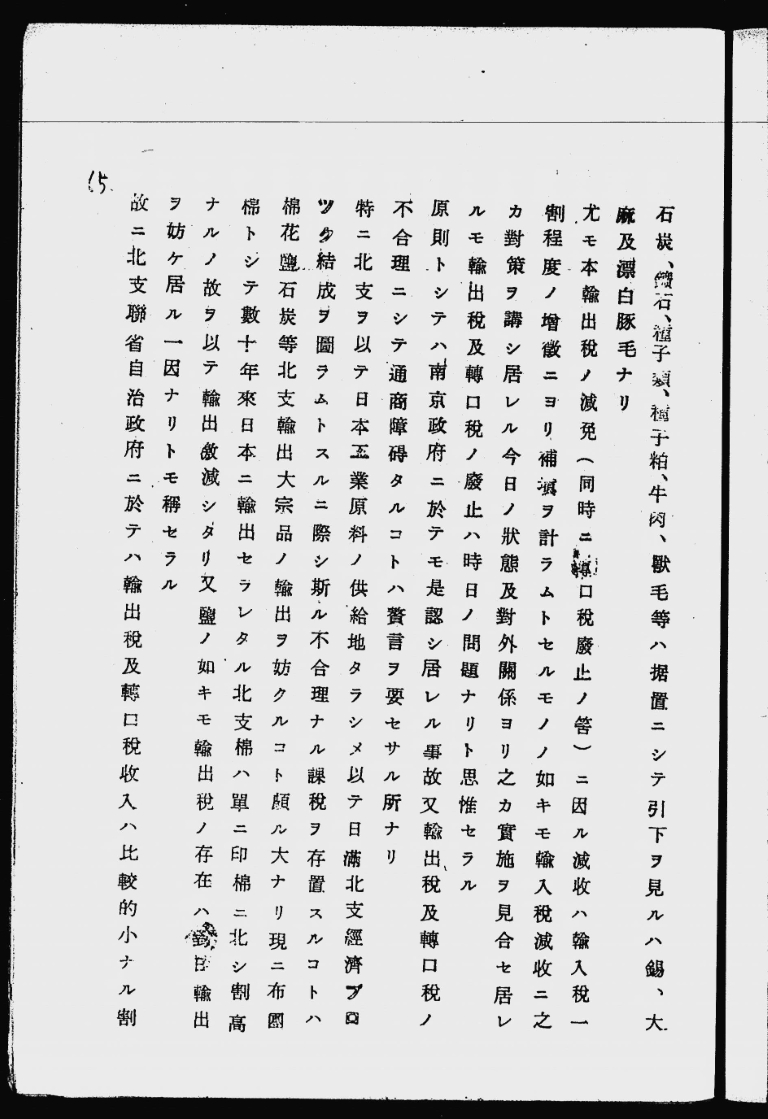 石炭、鑛石、種子類、種子粕、牛肉、獸毛等ハ据置ニシテ引下ヲ見ルハ錫、大
麻及漂白豚毛ナリ
尤モ本輸出稅ノ減免(同時ニ轉口稅廢止ノ筈)ニ因ル減收ハ輸入稅一
割程度ノ增徵ニヨリ補塡ヲ計ラムトセルモノノ如キモ輸入稅減收ニ之
カ對策ヲ講シ居レル今日ノ狀態及對外關係ヨリ之カ實施ヲ見合セ居レ
ルモ輸出稅及轉口稅ノ廢止ハ時日ノ問題ナリト思惟セラル
原則トシテハ南京政府ニ於テモ是認シ居レル事故又輸出稅及轉口稅ノ
不合理ニシテ通商障碍タルコトハ贅言ヲ要セサル所ナリ
特ニ北支ヲ以テ日本工業原料ノ供給地タラシメ以テ日滿北支經濟ブロ
ツク結成ヲ圖ラムトスルニ際シ斯ル不合理ナル課稅ヲ存置スルコトハ
棉花鹽石炭等北支輸出大宗品ノ輸出ヲ妨クルコト頗ル大ナリ現ニ布團
棉トシテ數十年來日本ニ輸出セラレタル北支棉ハ單ニ印棉ニ北シ割高
ナルノ故ヲ以テ輸出激減シタリ又鹽ノ如キモ輸出稅ノ存在ハ對日輸出
ヲ妨ケ居ル一因ナリトモ稱セラル
故ニ北支聯省自治政府ニ於テハ輸出稅及轉口稅收入ハ比較的小ナル割
15.